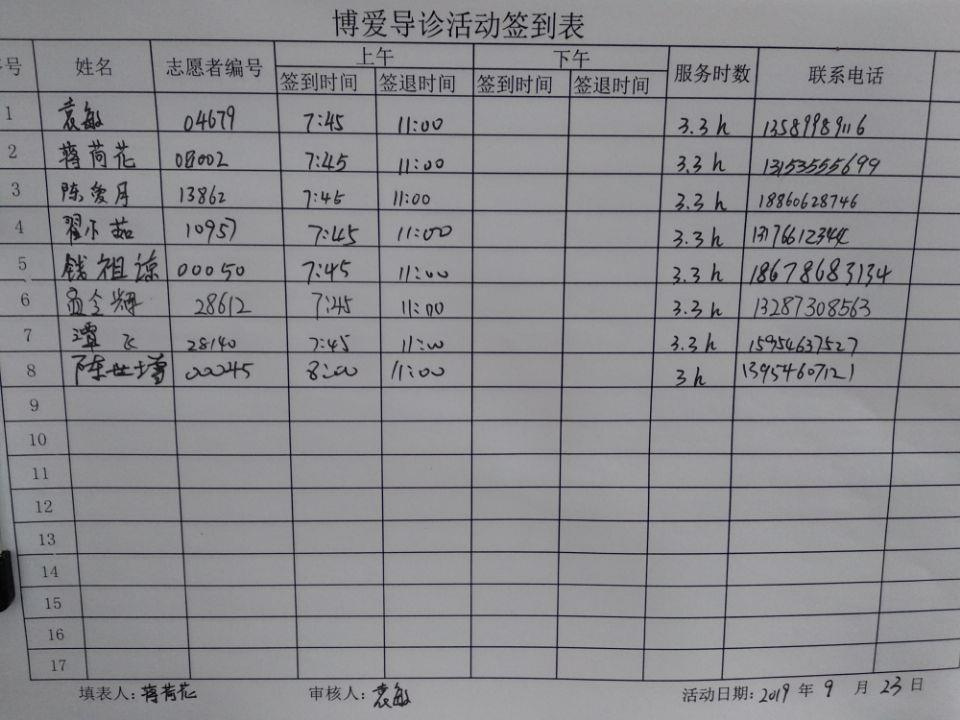 博爱导诊活动签到表
序号 姓名 志愿者编号 上午 下午 服务时数 联系电话
签到时间 签退时间 签到时间 签退时间
1 袁敏 04679 7:45 11:00 3.3h 13589989116
2 蒋荷花 08002 7:45 11:00 3.3h 13153555699
3 陈爱月 13862 7:45 11:00 3.3h 18860628746
4 翟小茹 10957 7:45 11:00 3.3h
5 钱祖谅 00050 7:45 11:00 3.3h 18678683134
6 孟令辉 28612 7:45 11:00 3.3h 13287308563
7 谭飞 28140 7:45 11:00 3.3h 15954637527
8 陈世增 00045 8:00 11:00 3h 13954607121
9
10
11
12
13
14
15
16
17
填表人:蒋荷花 审核人:袁敏 活动日期:2019年9月23日